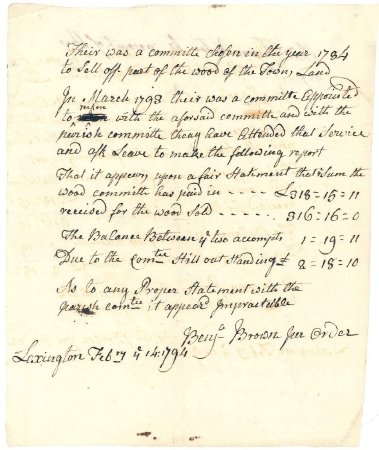 Their was a committe Chosen in the year 1784
to Sell off part of the wood of the Towns Land
In March 1793 their was a committe Appointed
reckon
to with the aforsaid committe and with the
parish committe they have Attended that Service
and ask Leave to make the following report
That it appears upon a fair Statement that Sum the
wood committe has paid in - - - - - £318=15=11
receied for the wood Sold - - - - - 316=16=0
The Balance Between ye two accompts 1=19=11
Due to the Comtee Still out Standing £ 2=18=10
As to any Proper Statement with the
parish comtee it appeard Impracteible
Benja Brown per Order
Lexington Febry ye 14: 1794